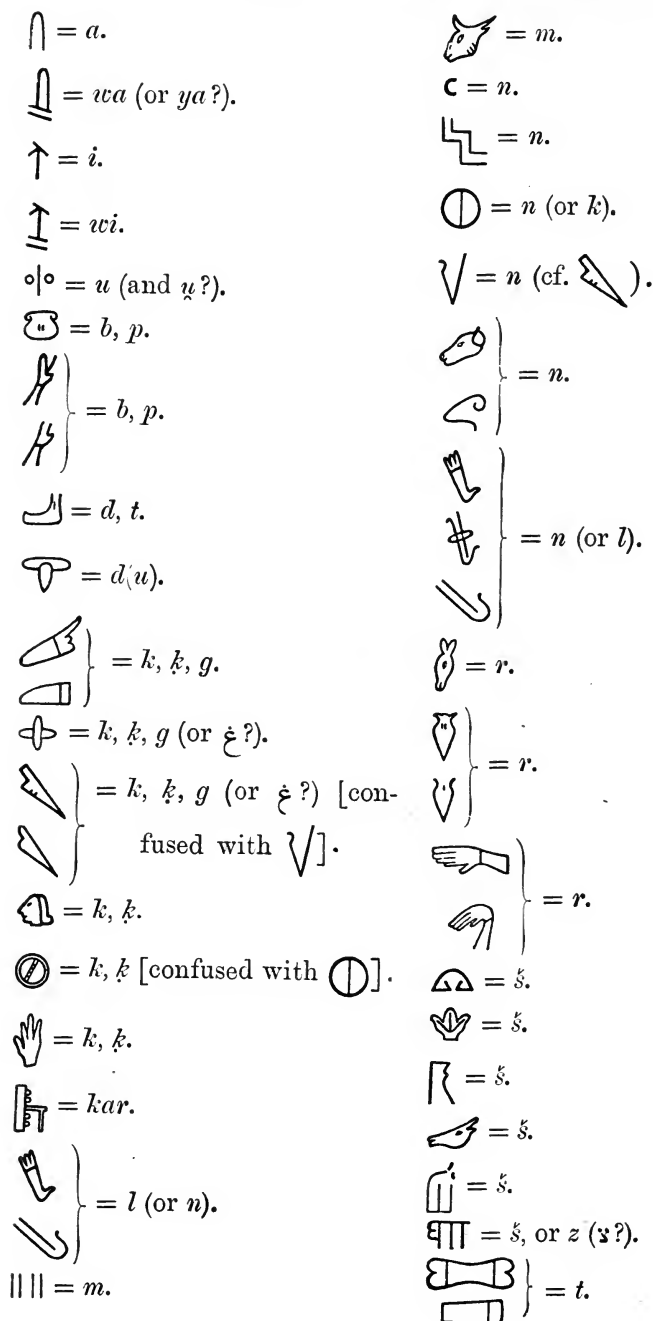 = a.
= wa (or ya?).
= i.
= wi.
= u (and u̯?).
= b, p.
= b, p.
= d, t.
= d(u).
= k, ḳ, g.
= k, ḳ, g (or غ?).
= k, ḳ, g (or غ?) [con-
fused with ].
= k, ḳ.
= k, ḳ [confused with ].
= k, ḳ.
= kar.
= l (or n).
|| || = m.
= m.
C = n.
= n.
= n (or k).
= n (cf. ).
= n.
= n (or l).
= r.
= r.
= r.
= š.
= š.
= š.
= š.
= š.
= š, or z (צ?).
= t.